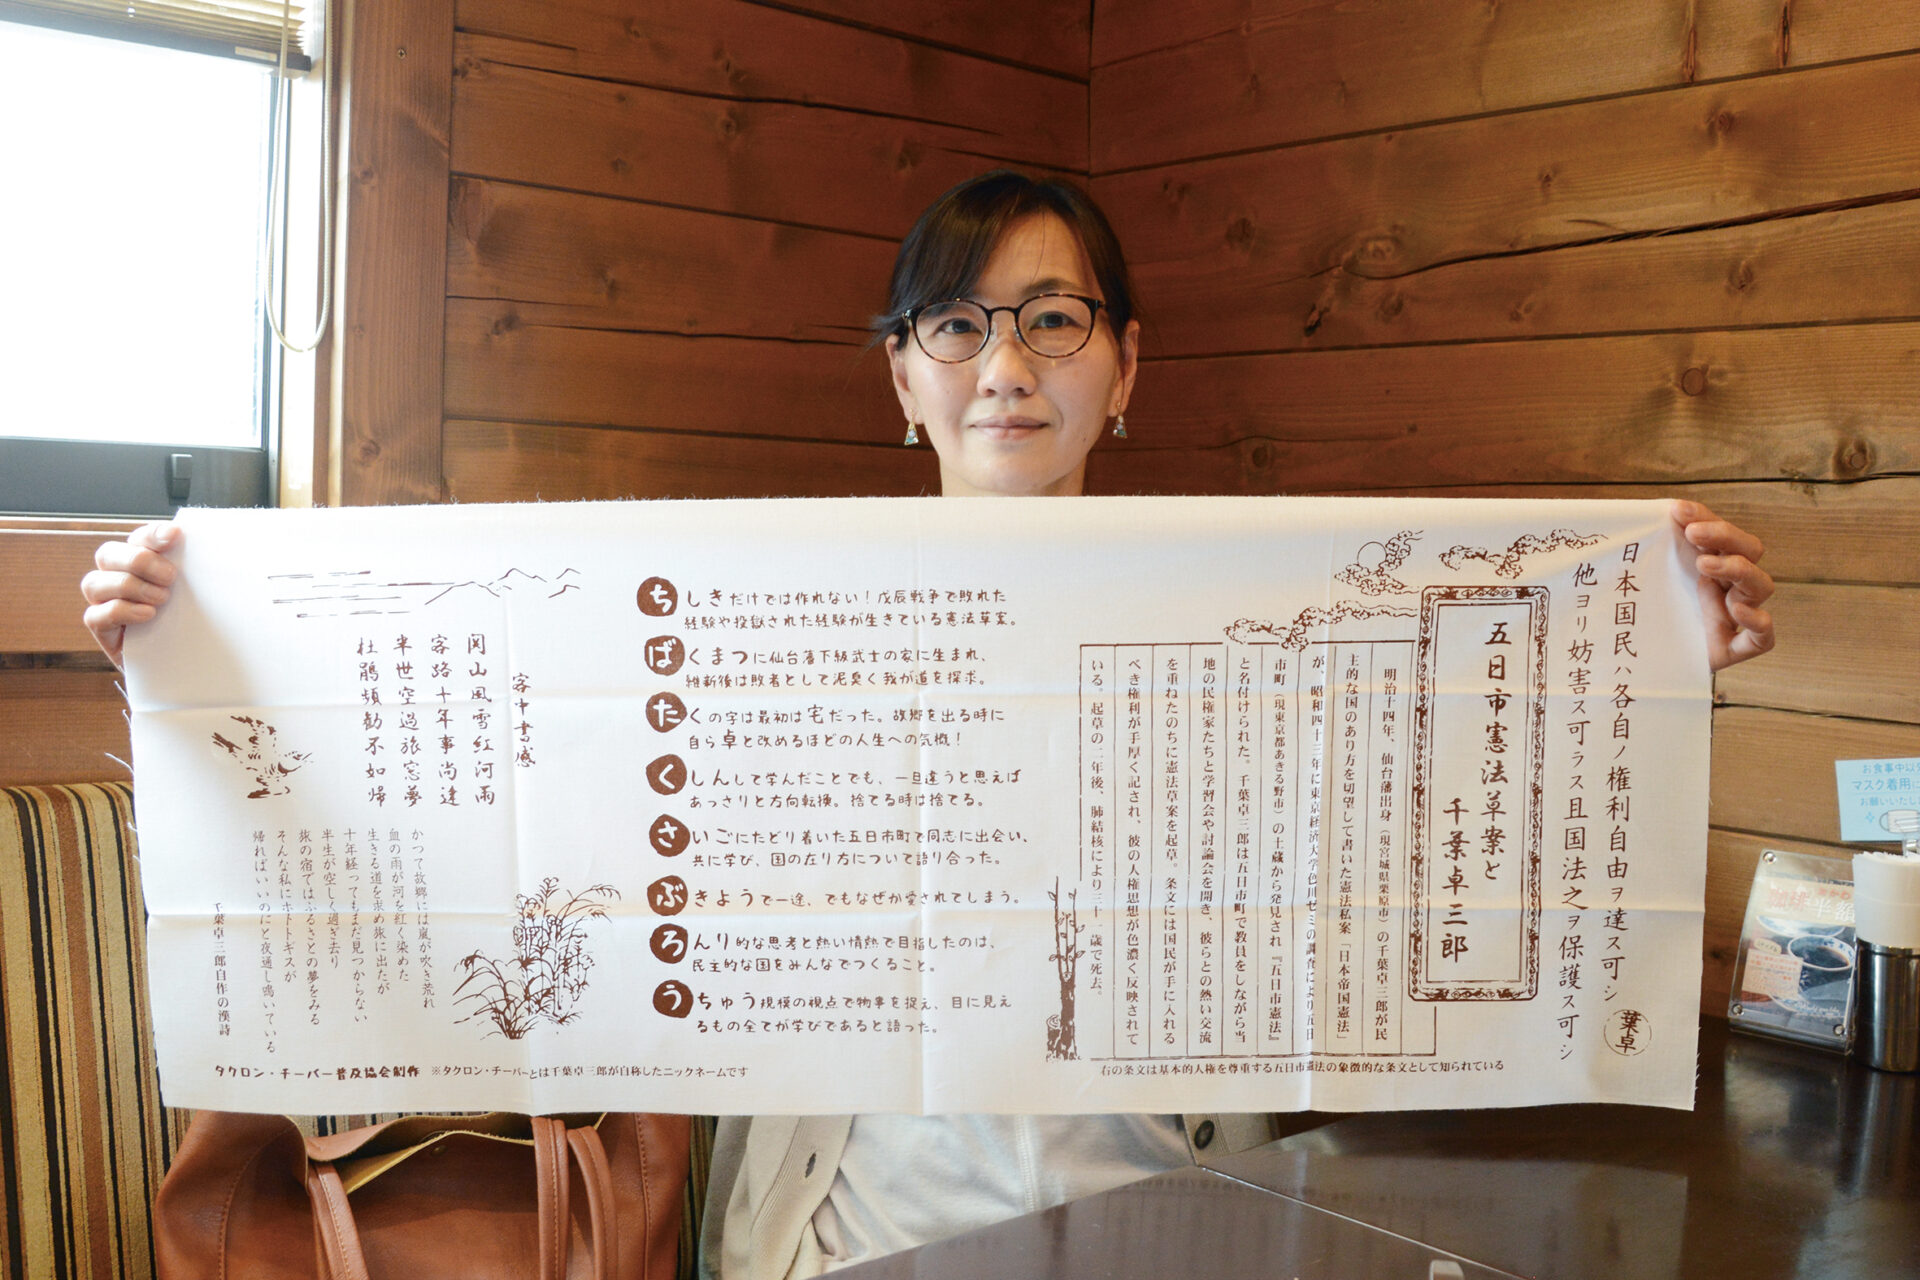 日本国民ハ各自ノ権利自由ヲ達ス可シ
他ヨリ妨害ス可ラス且国法之ヲ保護ス可シ
葉卓
五日市憲法草案と
千葉卓三郎
明治十四年、仙台藩出身（現宮城県栗原市）の千葉卓三郎が民
主的な国のあり方を切望して書いた憲法私案「日本帝国憲法」
が、昭和四十三年に東京経済大学色川ゼミの調査により五日
市町（現東京都あきる野市）の土蔵から発見され『五日市憲法』
と名付けられた。千葉卓三郎は五日市町で教員をしながら当
地の民権家たちと学習会や討論会を開き、彼らとの熱い交流
を重ねたのちに憲法草案を起草。条文には国民が手に入れる
べき権利が手厚く記され、彼の人権思想が色濃く反映されて
いる。起草の二年後、肺結核により三十一歳で死去。
右の条文は基本的人権を尊重する五日市憲法の象徴的な条文として知られている
ちしきだけでは作れない！戊辰戦争で敗れた
経験や投獄された経験が生きている憲法草案。
ばくまつに仙台藩下級武士の家に生まれ、
維新後は敗者として泥臭く我が道を探求。
たくの字は最初は宅だった。故郷を出る時に
自ら卓と改めるほどの人生への気概！
くしんして学んだことでも、一旦違うと思えば
あっさりと方向転換。捨てる時は捨てる。
さいごにたどり着いた五日市町で同志に出会い、
共に学び、国の在り方について語り合った。
ぶきようで一途、でもなぜか愛されてしまう。
ろんり的な思考と熱い情熱で目指したのは、
民主的な国をみんなでつくること。
うちゅう規模の視点で物事を捉え、目に見え
るもの全てが学びであると語った。
客中書感
関山風雪紅河雨
客路十年事尚違
半世空過旅窓夢
杜鵑頻勧不如帰
かつて故郷には嵐が吹き荒れ
血の雨が河を紅く染めた
生きる道を求め旅に出たが
十年経ってもまだ見つからない
半生が空しく過ぎ去り
旅の宿ではふるさとの夢をみる
そんな私にホトトギスが
帰ればいいのにと夜通し鳴いている
千葉卓三郎自作の漢詩
タクロン・チーバー普及協会制作　※タクロン・チーバーとは千葉卓三郎が自称したニックネームです
お食事中以
マスク着用に
お願いいたし